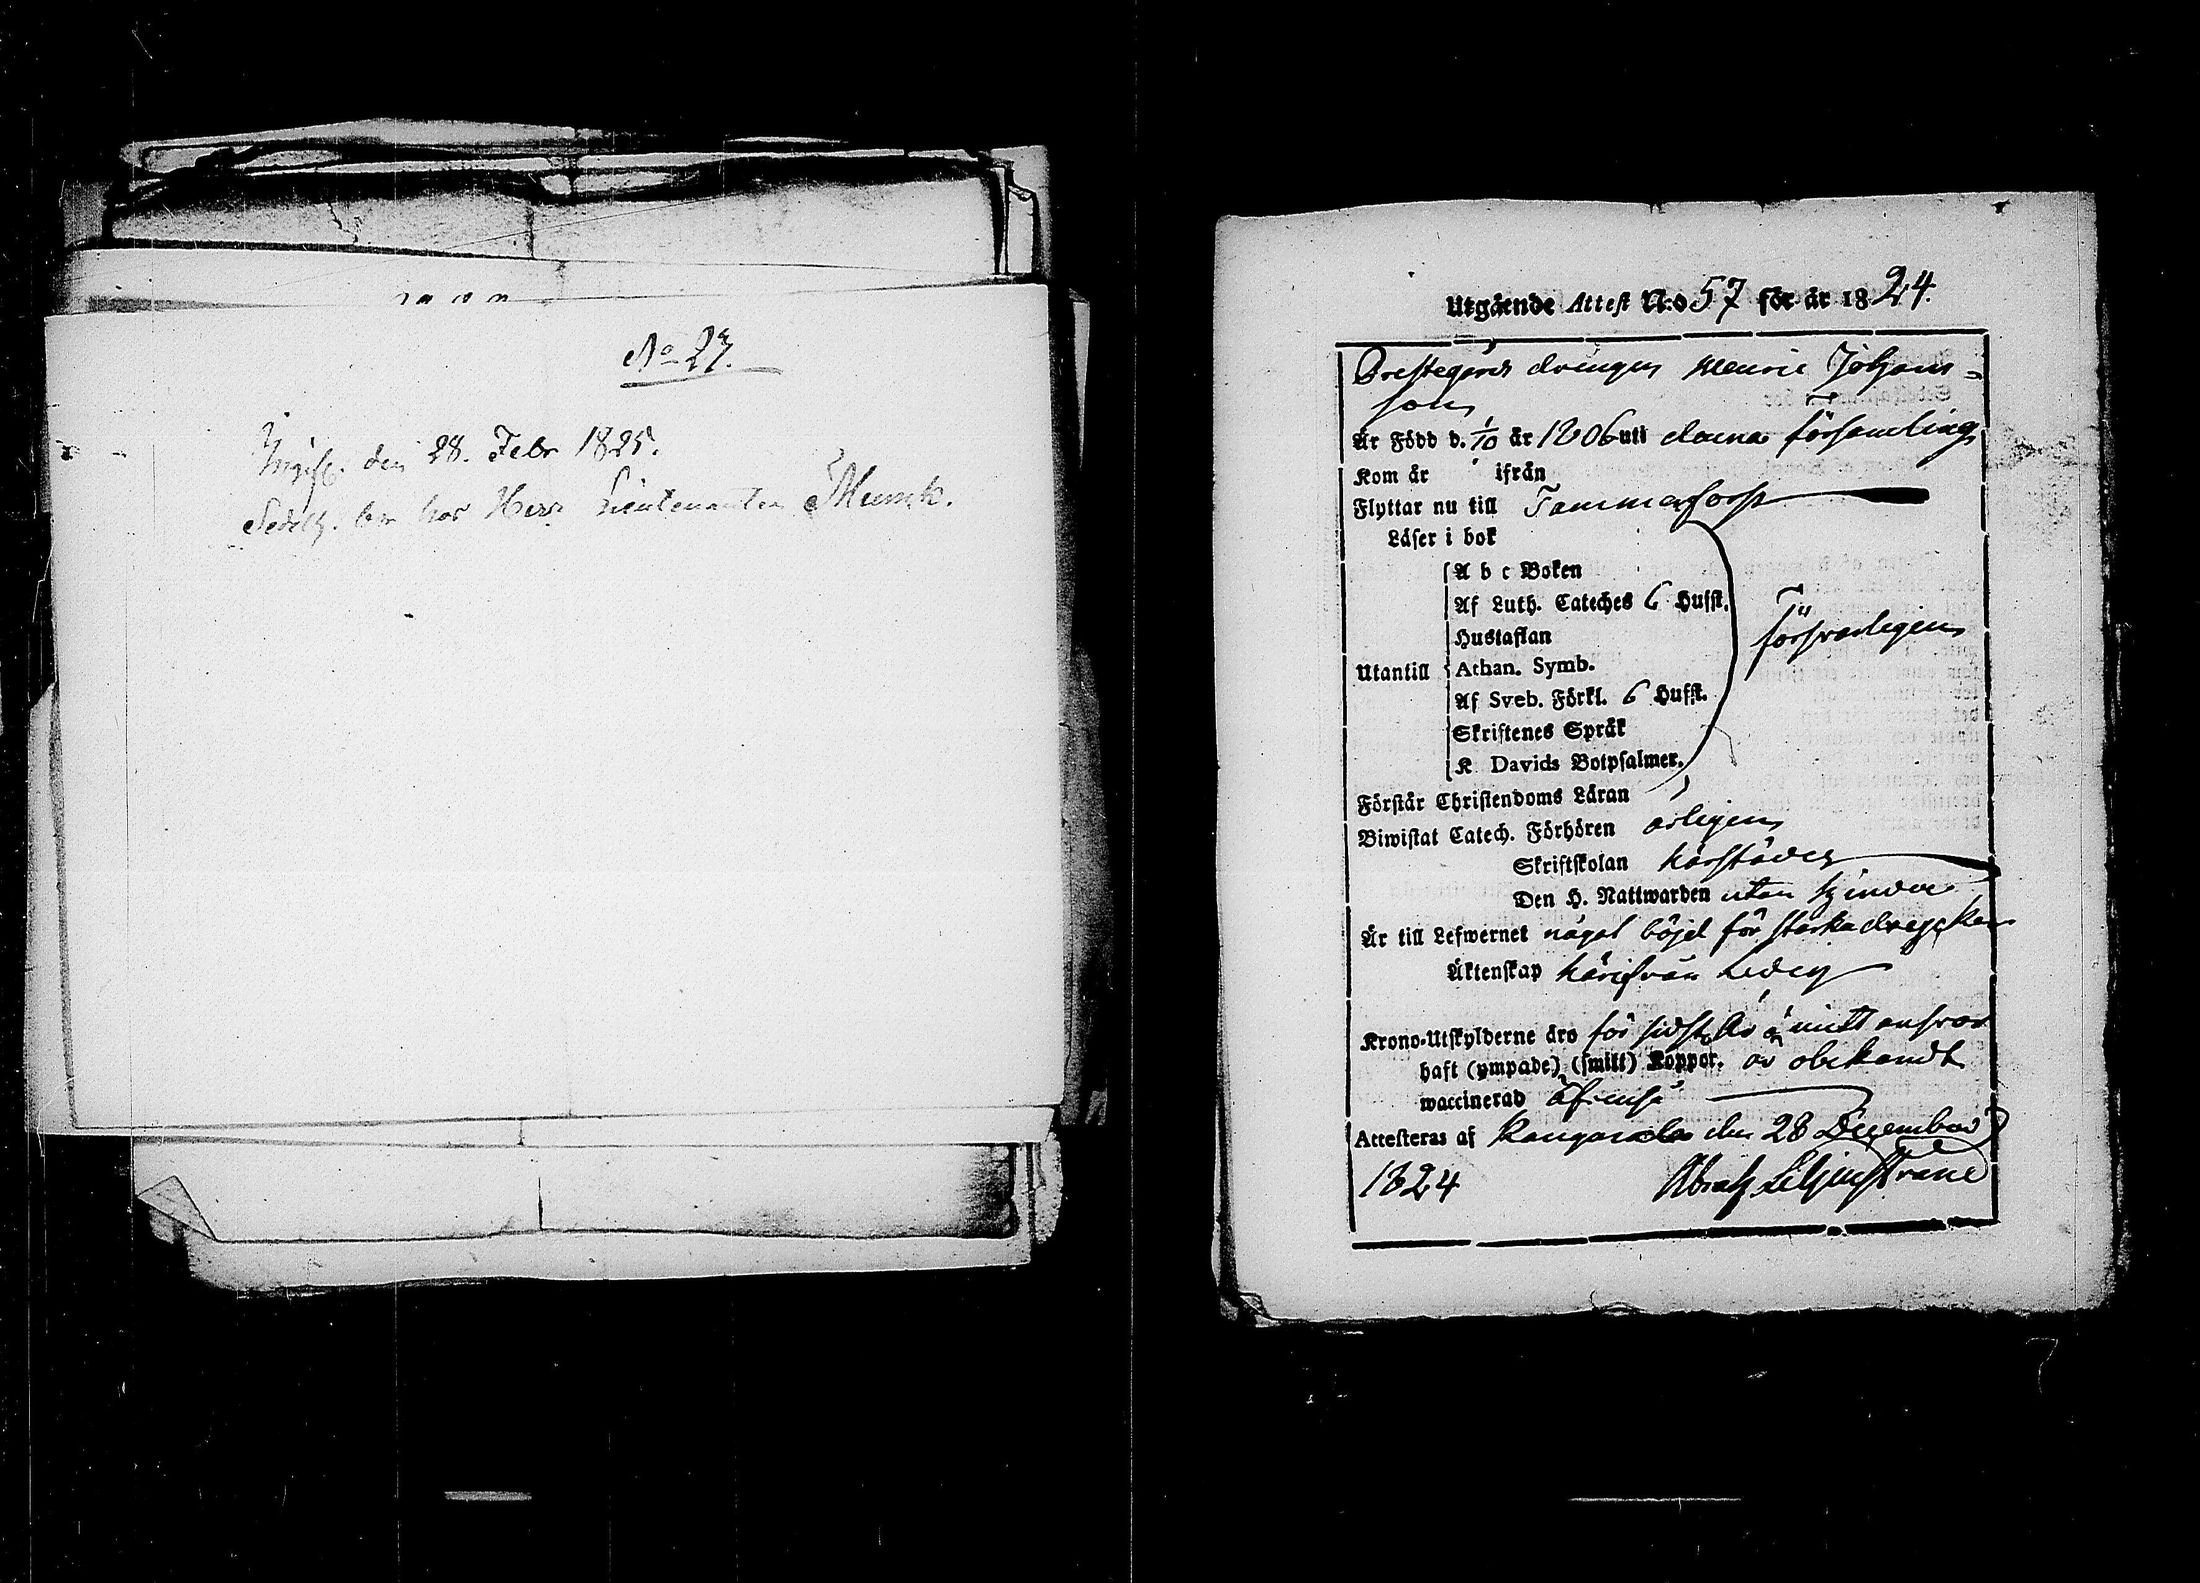 No 27.
Ingifv. den 28. Febr 1825.
hos Herr Lieutenanten Munck.
Utgående Attest N:o 57 för år 1824.
Prestegårds drengen Henric Johans=
son
Är Född d. 1/10 år 1806 uti denna församling
Kom år ifrån
Flyttar nu till Tammerfors
Läser i bok
A b c Boken
Af Luth. Cateches 6 Hufst.
Hustaflan
Utantill Athan. Symb.
Af Sveb. Förkl. 6 Hufst.
Skriftenes Språk
K Davids Botpsalmer.
försvarligen
Förstår Christendoms Läran
Biwistat Catech. Förhören årligen
Skriftskolan härstädes
Den H. Nattwarden utan hinder
Är till Lefwernet något böjd för starka drycker
Äktenskap härifrån Ledig
Krono-Utskylderne äro för sidst. år å mitt ansvar
haft (ympade) (smitt) Koppor. är obekandt
waccinerad
Attesteras af Kangasala den 28 December
1824 Abrah Liljestrand